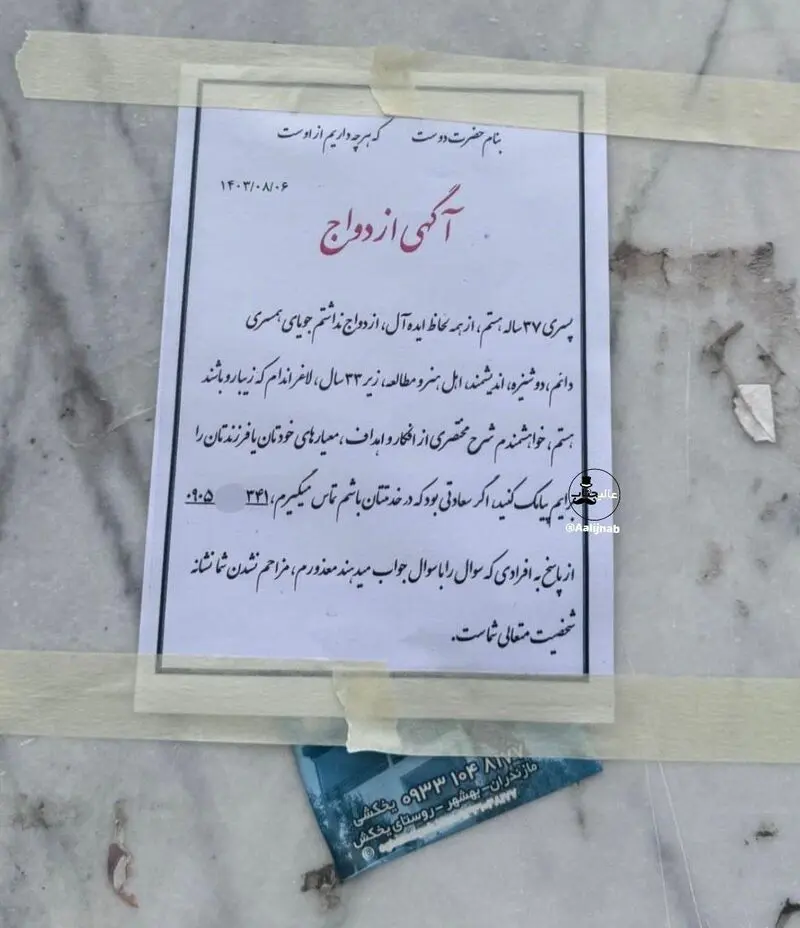 بنام حضرت دوست که هرچه داریم از اوست
۱۴۰۳/۰۸/۰۶
آگهی ازدواج
پسری ۳۷ ساله هستم، از همه لحاظ ایده آل، ازدواج نداشتم جویای همسری
دائم، دوشیزه، اندیشمند، اهل هنر و مطالعه، زیر ۳۳ سال، لاغر اندام که زیبارو باشند
هستم، خواهشمندم شرح مختصری از افکار و اهداف، معیارهای خودتان یا فرزندتان را
برایم پیامک کنید، اگر سعادتی بود که در خدمتتان باشم تماس میگیرم، ۳۴۱ ۰۹۰۵
از پاسخ به افرادی که سوال را با سوال جواب میدهند معذورم، مزاحم نشدن شما نشانه
شخصیت متعالی شماست.
عالیجناب
@Aalijnab
۰۹۳۳ ۱۰۴ یخکشی
مازندران - بهشهر - روستای یخکش